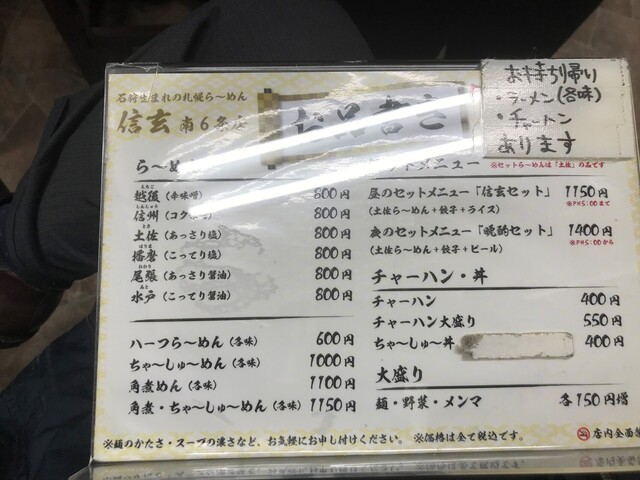 石狩生まれの札幌ら～めん
信玄 南6条店
お品書き
お持ち帰り
・ラーメン(各味)
・チャーハン
あります
ら～めん
越後(辛味噌) 800円
信州(コク味噌) 800円
土佐(あっさり塩) 800円
播磨(こってり塩) 800円
尾張(あっさり醤油) 800円
水戸(こってり醤油) 800円
ハーフら～めん(各味) 600円
ちゃ～しゅ～めん(各味) 1000円
角煮めん(各味) 1100円
角煮・ちゃ～しゅ～めん(各味) 1150円
セットメニュー ※セットら～めんは「土佐」の品です
昼のセットメニュー「信玄セット」 1150円
(土佐ら～めん+餃子+ライス) ※PM5:00まで
夜のセットメニュー「晩酌セット」 1400円
(土佐ら～めん+餃子+ビール) ※PM5:00から
チャーハン・丼
チャーハン 400円
チャーハン大盛り 550円
ちゃ～しゅ～丼 400円
大盛り
麺・野菜・メンマ 各150円増
※麺のかたさ・スープの濃さなど、お気軽にお申し付けください。 ※価格は全て税込です。
店内全面禁